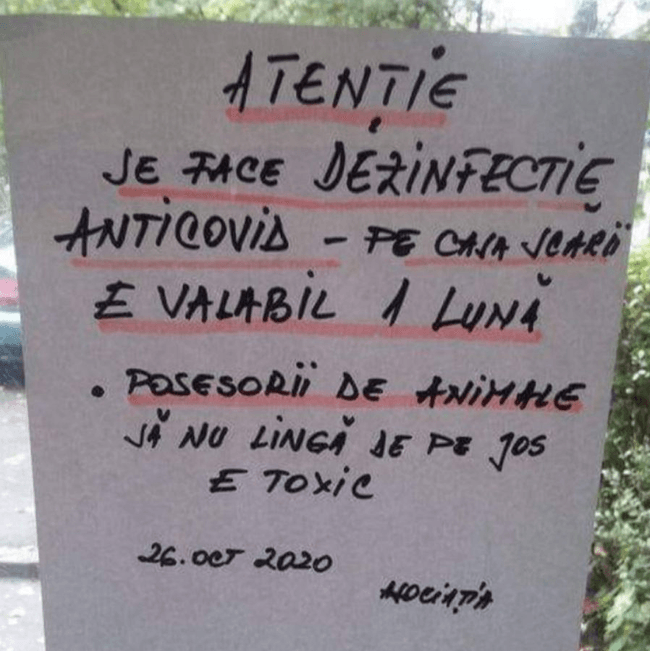 ATENȚIE
SE FACE DEZINFECTIE
ANTICOVID - PE CASA SCĂRII
E VALABIL 1 LUNĂ
• POSESORII DE ANIMALE
SĂ NU LINGĂ DE PE JOS
E TOXIC
26.OCT 2020
ASOCIAȚIA